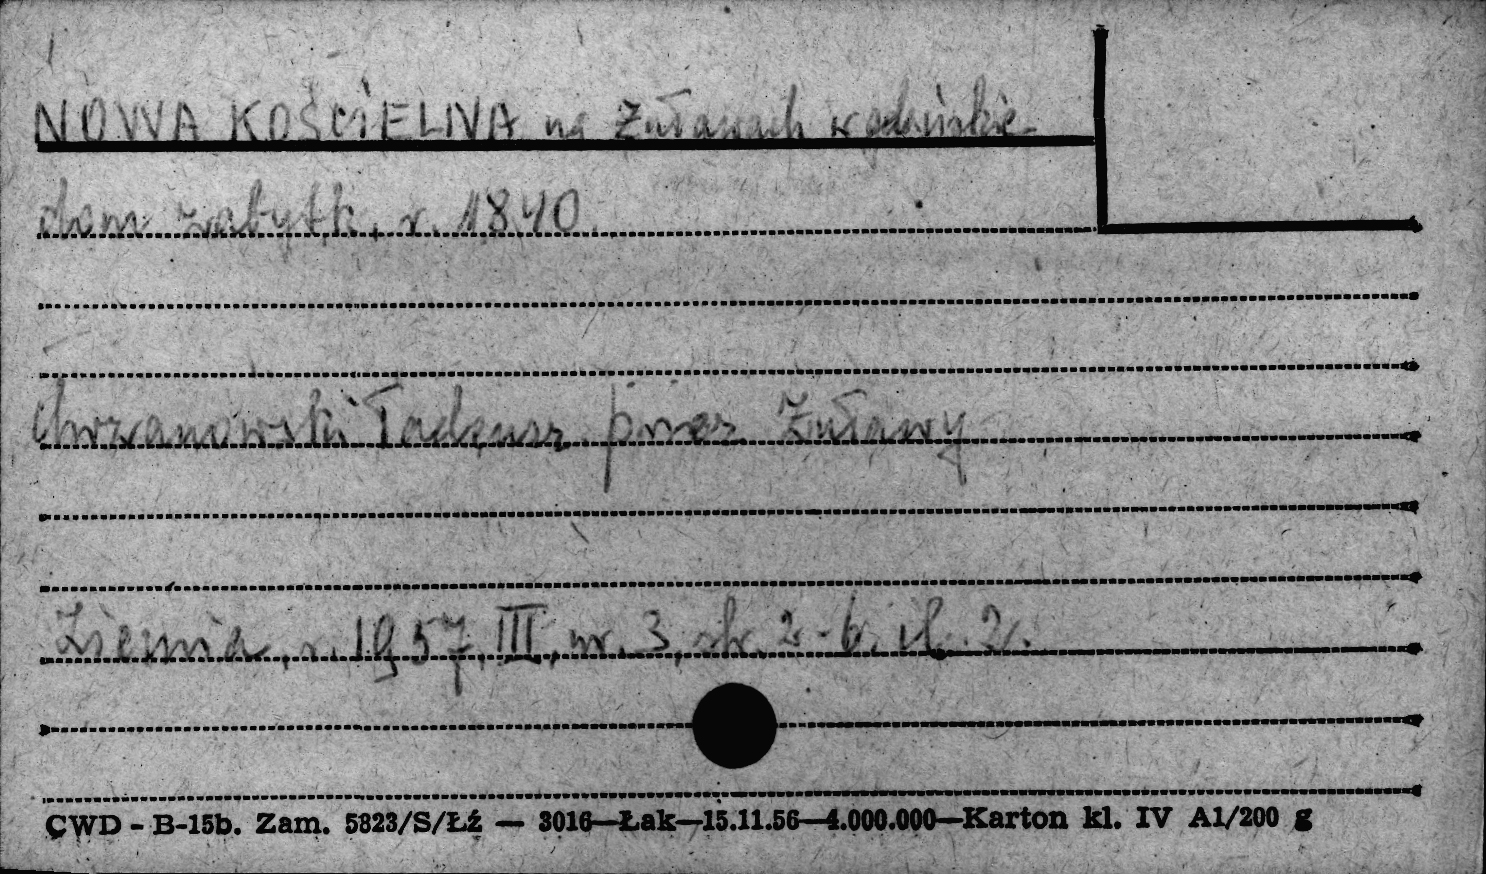 NOWA KOŚCIELNA na Żuławach w gdańskie-
dom zabytk. r. 1840.
Chrzanowski Tadeusz przez Żuławy
Ziemia, r. 1957, III, nr. 3, str. 2-6. il. 2.
CWD - B-15b. Zam. 5823/S/Łź — 3016—Łak—15.11.56—4.000.000—Karton kl. IV A1/200 g